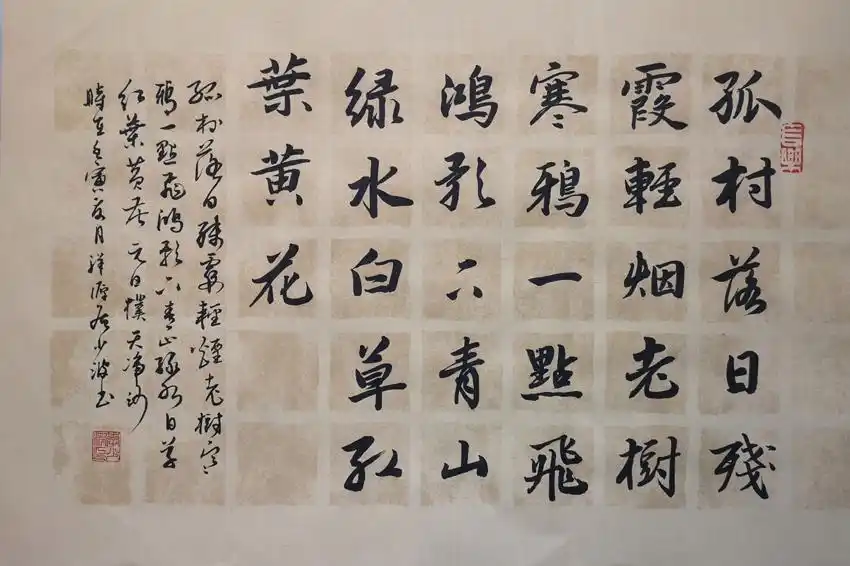 孤村落日殘
霞輕烟老樹
寒鴉一點飛
鴻影下青山
綠水白草紅
葉黄花
孤村落日殘霞輕煙老樹寒
鴉一點飛鴻影下青山綠水白草
紅葉黄花 元白樸天淨沙
時在 月 少波書